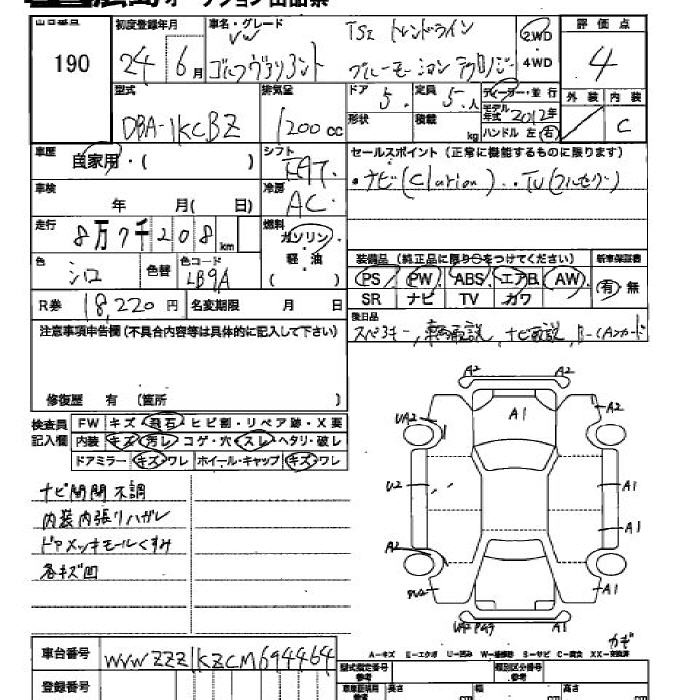 出品番号 初度登録年月 車名・グレード 評価点
190 24年 6月 VW TSI トレンドライン 2WD ・ 4WD 4
ゴルフヴァリアント ブルーモーションテクノロジー
型式 排気量 ドア 定員 ディーラー・並行 外装 内装
DBA-1KCBZ 1200cc 5. 5.人 モデル年式 2012年 C
形状 積載 kg ハンドル 左 右
車歴 自家用・( ) シフト FAT. セールスポイント(正常に機能するものに限ります)
車検 年 月( 日) 冷房 AC. ・ナビ(Clarion)..TV(フルセグ)
走行 8万7千208km 燃料 ガソリン・軽・油 ( )
色 シロ 色替 色コード LB9A
装備品(純正品に限り○をつけてください) 新車保証書
PS PW ABS エアB AW 有・無
SR ナビ TV カワ
R券 18,220円 名変期限 月 日
後日品
スペアキー,車両取説,ナビ取説,B-CASカード
注意事項申告欄(不具合内容等は具体的に記入して下さい)
修復歴 有 (箇所 )
検査員記入欄 FW キズ・飛石・ヒビ割・リペア跡・X要
内装 キズ・汚レ・コゲ・穴・スレ・ヘタリ・破レ
ドアミラー キズ・ワレ ホイール・キャップ キズ・ワレ
ナビ開閉不調
内装内張りハガレ
ドアメッキモールくすみ
各キズ凹
A2 A2
UA2 A1 A2
U2 A1
A1
A2
A1
A1
カギ
A-キズ E-エクボ U-凹み W-補修跡 S-サビ C-腐食 XX-交換済
車台番号 WVWZZZ1KZCM694464
型式指定番号 類別区分番号
登録番号 長さ cm 幅 cm 高さ cm